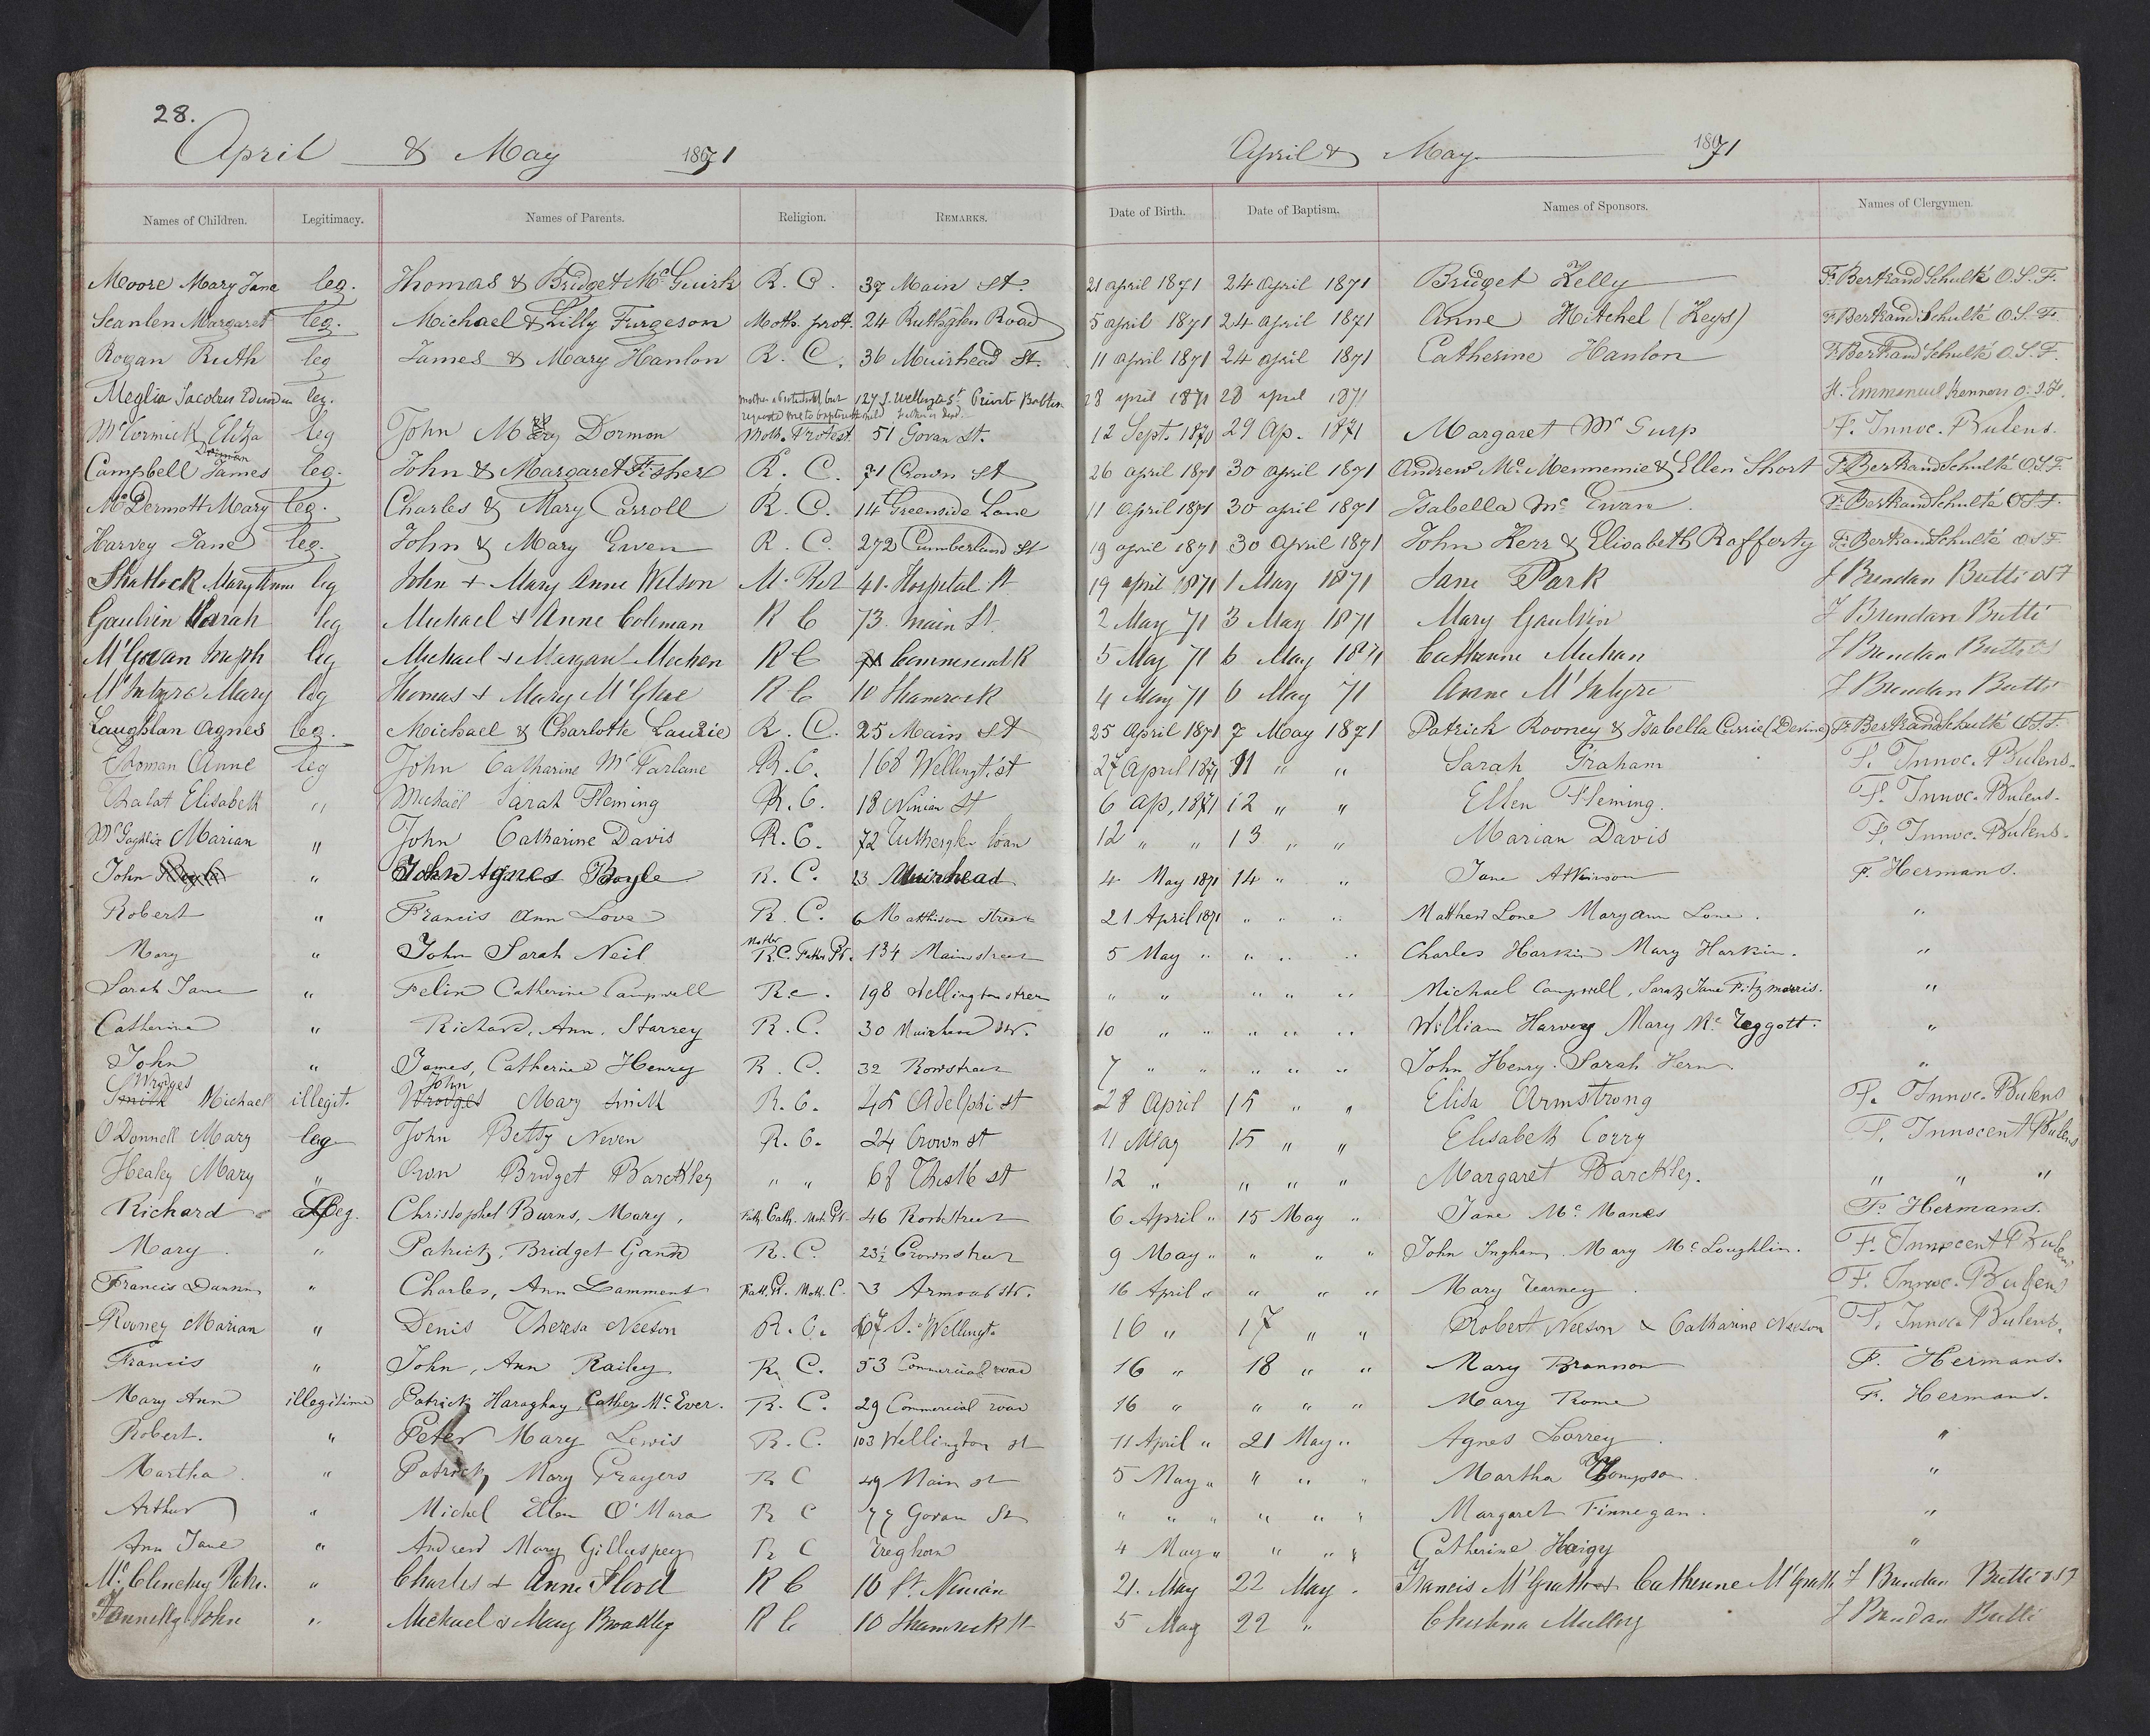 28.
April & May 1871
April & May 1871
Names of Children. Legitimacy. Names of Parents. Religion. REMARKS. Date of Birth. Date of Baptism. Names of Sponsors. Names of Clergymen.
Moore Mary Jane leg. Thomas & Bridget McGuirk R. C. 37 Main St. 21 april 1871 24 April 1871 Bridget Kelly F. Bertrand Schulté O.S.F.
Scanlen Margaret leg. Michael & Lilly Furgeson Moth. prot. 24 Rutherglen Road 5 april 1871 24 april 1871 Anne Mitchel (Keys) F. Bertrand Schulté O.S.F.
Rogan Ruth leg James & Mary Hanlon R. C. 36 Muirhead St. 11 april 1871 24 april 1871 Catherine Hanlon F. Bertrand Schulté O.S.F.
Meglia Jacobus leg. 127 S. Wellington St. 28 april 1871 28 april 1871 F. Emmanuel Kennon O.S.F.
McCormick Eliza leg John Mary Dormon Moth. Protest. 51 Govan St. 12 Sept. 1870 29 Ap. 1871 Margaret Mc Gurp F. Innoc. Bulens.
Campbell James leg. John & Margaret Fisher R. C. 71 Crown St 26 april 1871 30 april 1871 Andrew McMennemie & Ellen Short F. Bertrand Schulté O.S.F.
McDermott Mary leg. Charles & Mary Carroll R. C. 14 Greenside Lane 11 April 1871 30 april 1871 Isabella Mc Ewan. F. Bertrand Schulté O.S.F.
Harvey Jane leg. John & Mary Ewen R. C. 272 Cumberland St 19 april 1871 30 April 1871 John Kerr & Elisabeth Rafferty F. Bertrand Schulté O.S.F.
Shattock Mary Anne leg John + Mary Anne Wilson 41. Hospital St 19 april 1871 1 May 1871 Jane Park F Brendan Butti OSF
Gaulvin Sarah leg Michael & Anne Coleman R C 73. Main St. 2 May 71 3 May 1871 Mary Gaulvin F Brendan Butti
M'Govan Joseph leg Michael & Margaret Mechen R C 71 Commercial R 5 May 71 6 May 1871 Catherine Mechan F Brendan Butti
M'Intyre Mary leg Thomas + Mary M'Ghee R C 10 Shamrock 4 May 71 6 May 71 Anne M'Intyre F Brendan Butti
Laughlan Agnes leg. Michael & Charlotte Laurie R. C. 25 Main St 25 April 1871 7 May 1871 Patrick Rooney & Isabella Currie (Devine) F. Bertrand Schulté O.S.F.
Thoman Anne leg John Catharine McFarlane R. C. 168 Wellingt. st 27 April 1871 11 " " Sarah Graham F. Innoc. Bulens.
Thalat Elisabeth " Michaël Sarah Fleming R. C. 18 Ninian St 6 Ap. 1871 12 " " Ellen Fleming. F. Innoc. Bulens.
Marian " John Catharine Davis R. C. 72 Ruthergle. loan 12 " " 13 " " Marian Davis F. Innoc. Bulens.
John " John Agnes Boyle R. C. 23 Muirhead 4 May 1871 14 " " Jane Atkinson F. Hermans.
Robert " Francis Ann Love R. C. 6 Matthison Street 21 April 1871 " " " Matthew Lone Mary ann Lone. "
Mary " John Sarah Neil Mother R.C. Fath. Pr. 134 Mainstreet 5 May " " " " Charles Harkin Mary Harkin. "
Sarah Jane " Felix Catherine Campwell R.c. 198 Wellington street " " " " " Michael Campwell, Sarah Jane Fitzmorris. "
Catherine " Richard, Ann, Starrey R. C. 30 Muirhead str. 10 " " " " " William Harvey Mary Mc Teggott. "
John " James, Catherine Henry R. C. 32 Rosestreet 7 " " " " " John Henry. Sarah Hern "
Wrodges
Smith Michael illegit. John Wrodges Mary Smith R. C. 45 Adelphi st 28 April 15 " " Elisa Armstrong F. Innoc. Bulens
O'Donnell Mary leg John Betty Neven R. C. 24 Crown st 11 May 15 " " Elisabeth Corry F. Innocent Bulens
Healey Mary " Own Bridget Barckley " " 68 Thistle st 12 " " " " Margaret Barckley. " " "
Richard Leg. Christophel Burns, Mary, Fath. Cath. Moth. Pr. 46 Rosestreet 6 April " 15 May " Jane Mc Manes F. Hermans.
Mary. " Patrick, Bridget Gann R. C. 23½ Crownstreet 9 May " " " " John Ingham. Mary McLoughlin. F. Innocent Bulens
Francis Dannn " Charles, Ann Lamment Fath. Pr. Moth. C. 3 Armour str. 16 April " " " " Mary Tearney. F. Innoc. Bulens
Rooney Marian " Denis Theresa Neeson R. C. 67 S. Wellingt. 16 " 17 " " Robert Neeson & Catharine Neeson F. Innoc. Bulens.
Francis " John, Ann Railey R. C. 53 Commercial road 16 " 18 " " Mary Brannon F. Hermans.
Mary Ann illegitime Patrick Haraghay, Cather. McEver. R. C. 29 Commercial road 16 " " " " Mary Frome F. Hermans.
Robert. " Peter Mary Lewis R. C. 103 Wellington st 11 April " 21 May " Agnes Lorrey. "
Martha. " Patrick, Mary Prayers R C 49 Main st 5 May " " " " Martha Thompson. "
Arthur " Michel Ellen O'Mara R C 77 Govan St " " " " " " Margaret Finnegan. "
Ann Jane " Andrew Mary Gilluspey R C Treghorn 4 May " " " " Catherine Haigy "
McClenchy Patr. " Charles + Anne Flood R C 16 St. Ninian 21. May 22 May. Francis M'Grath + Catherine M'Grath F Brendan Butti OSF
Donnelly John " Michael & Mary Broadley R C 10 Shamrock St 5 May 22 " Christina Mullory F Brendan Butti